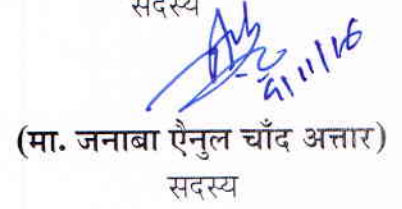 सदस्य
9/11/16
(मा. जनाबा ऐनुल चाँद अत्तार)
सदस्य